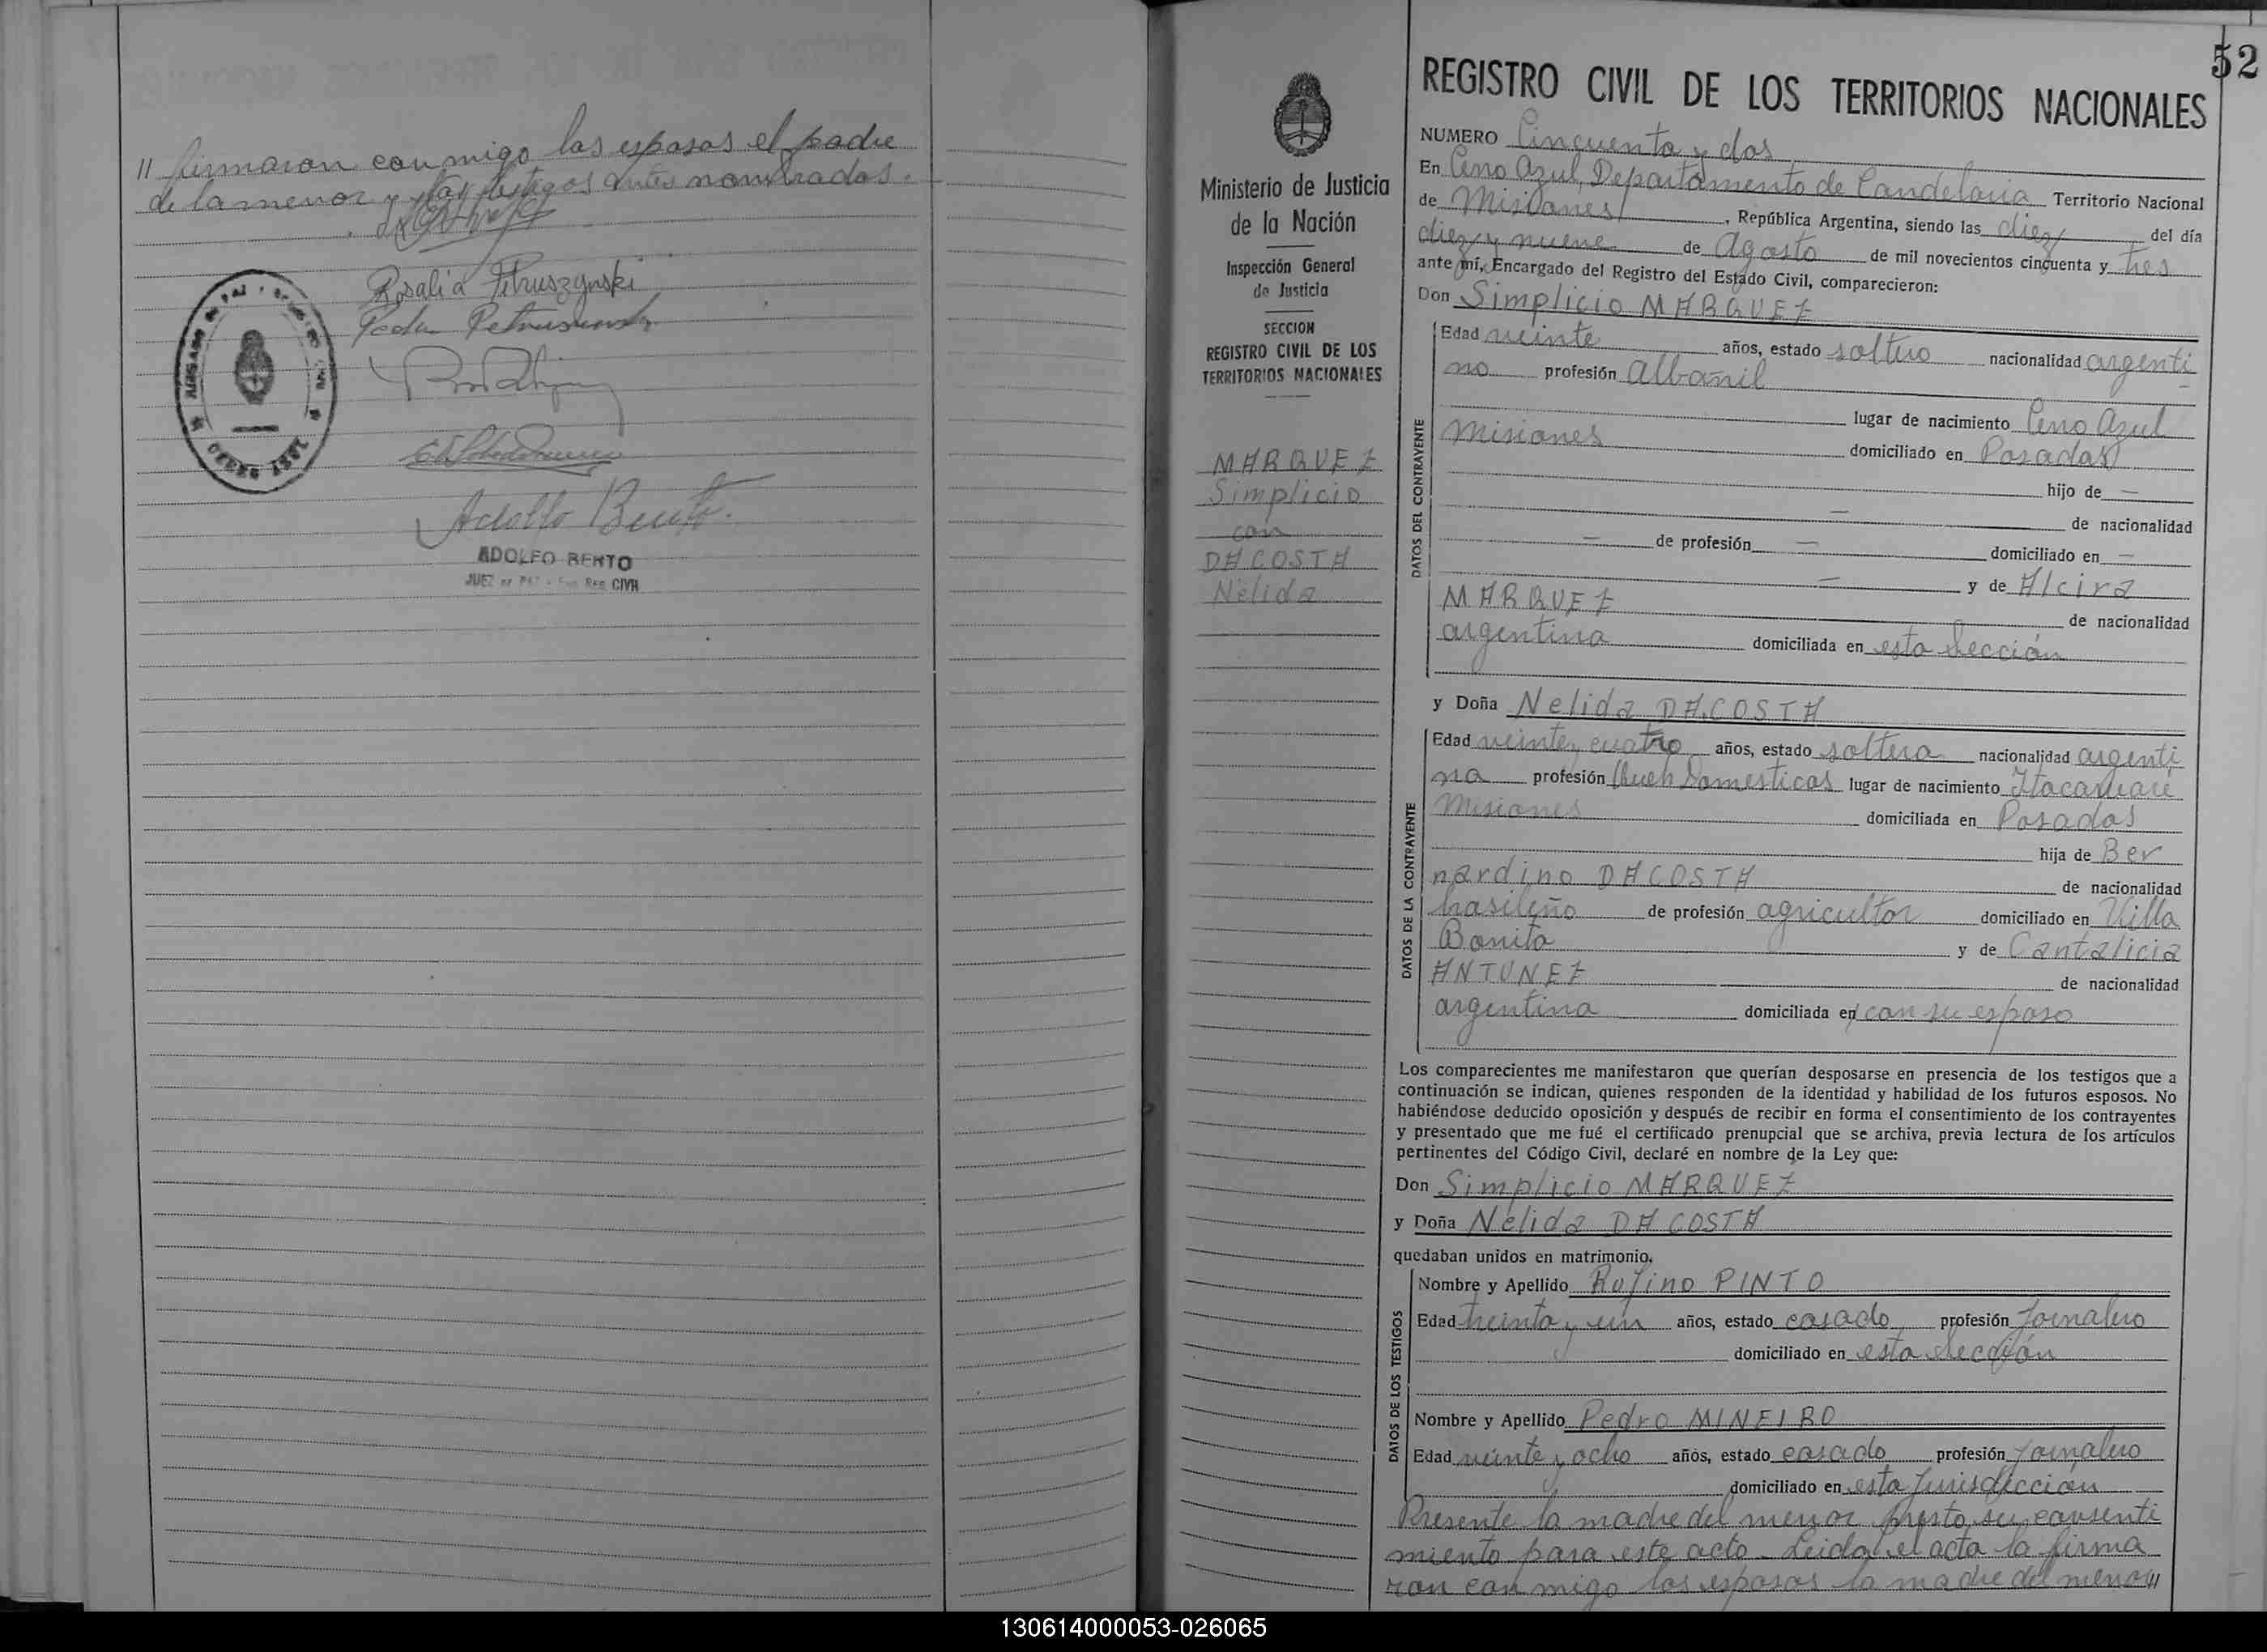 // firmaron conmigo los esposos el padre
de la menor y los testigos antes nombrados.
Rosalia Petruszynski
Adolfo Bento.
ADOLFO BENTO
JUEZ DE PAZ - REG CIVIL
52
REGISTRO CIVIL DE LOS TERRITORIOS NACIONALES
Ministerio de Justicia
de la Nación
Inspección General
de Justicia
SECCION
REGISTRO CIVIL DE LOS
TERRITORIOS NACIONALES
MARQUEZ
Simplicio
con
DA COSTA
Nélida
NUMERO Cincuenta y dos
En Cerro Azul, Departamento de Candelaria Territorio Nacional
de Misiones, República Argentina, siendo las diez del día
diez y nueve de Agosto de mil novecientos cincuenta y tres
ante mí, Encargado del Registro del Estado Civil, comparecieron:
Don Simplicio MARQUEZ
DATOS DEL CONTRAYENTE
Edad veinte años, estado soltero nacionalidad argenti
no profesión Albañil
lugar de nacimiento Cerro Azul
Misiones domiciliado en Posadas
hijo de —
— de nacionalidad
— de profesión — domiciliado en —
— y de Alcira
MARQUEZ de nacionalidad
argentina domiciliada en esta Sección
y Doña Nelida DA COSTA
DATOS DE LA CONTRAYENTE
Edad veinte y cuatro años, estado soltera nacionalidad argenti
na profesión Queh Domesticos lugar de nacimiento Itacaruaré
Misiones domiciliada en Posadas
hija de Ber
nardino DA COSTA de nacionalidad
brasileño de profesión agricultor domiciliado en Villa
Bonita y de Cantalicia
ANTUNEZ de nacionalidad
argentina domiciliada en con su esposo
Los comparecientes me manifestaron que querían desposarse en presencia de los testigos que a
continuación se indican, quienes responden de la identidad y habilidad de los futuros esposos. No
habiéndose deducido oposición y después de recibir en forma el consentimiento de los contrayentes
y presentado que me fué el certificado prenupcial que se archiva, previa lectura de los artículos
pertinentes del Código Civil, declaré en nombre de la Ley que:
Don Simplicio MARQUEZ
y Doña Nélida DA COSTA
quedaban unidos en matrimonio.
DATOS DE LOS TESTIGOS
Nombre y Apellido Rufino PINTO
Edad treinta y un años, estado casado profesión Jornalero
domiciliado en esta Sección
Nombre y Apellido Pedro MINEIRO
Edad veinte y ocho años, estado casado profesión Jornalero
domiciliado en esta Jurisdicción
Presente la madre del menor presta su consenti
miento para este acto. Leida el acta la firma
ron conmigo los esposos la madre del menor //
130614000053-026065